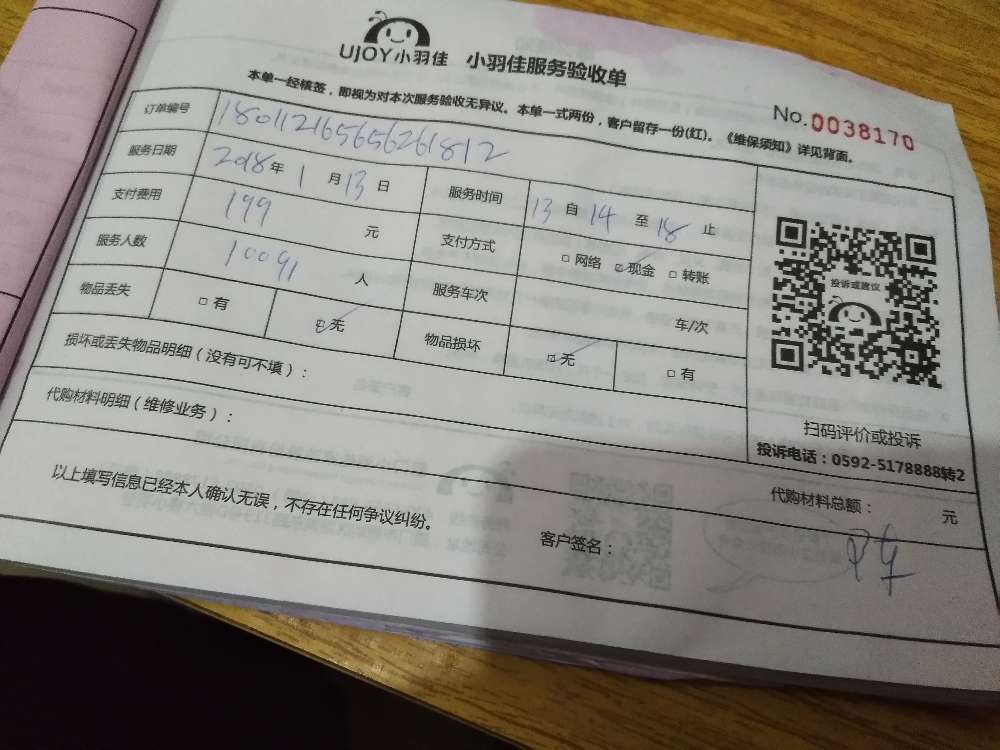 UJOY小羽佳 小羽佳服务验收单
本单一经核签，即视为对本次服务验收无异议。本单一式两份，客户留存一份(红)。《维保须知》详见背面。
No.0038170
订单编号 18011216565626181 2
服务日期 2018年1月13日 服务时间 13自14至18止
支付费用 199 元 支付方式 □网络 ☑现金 □转账
服务人数 10091 人 服务车次 车/次
物品丢失 □有 ☑无 物品损坏 ☑无 □有
投诉或建议
损坏或丢失物品明细（没有可不填）：
扫码评价或投诉
代购材料明细（维修业务）：
投诉电话：0592-5178888转2
代购材料总额： 元
以上填写信息已经本人确认无误，不存在任何争议纠纷。
客户签名：